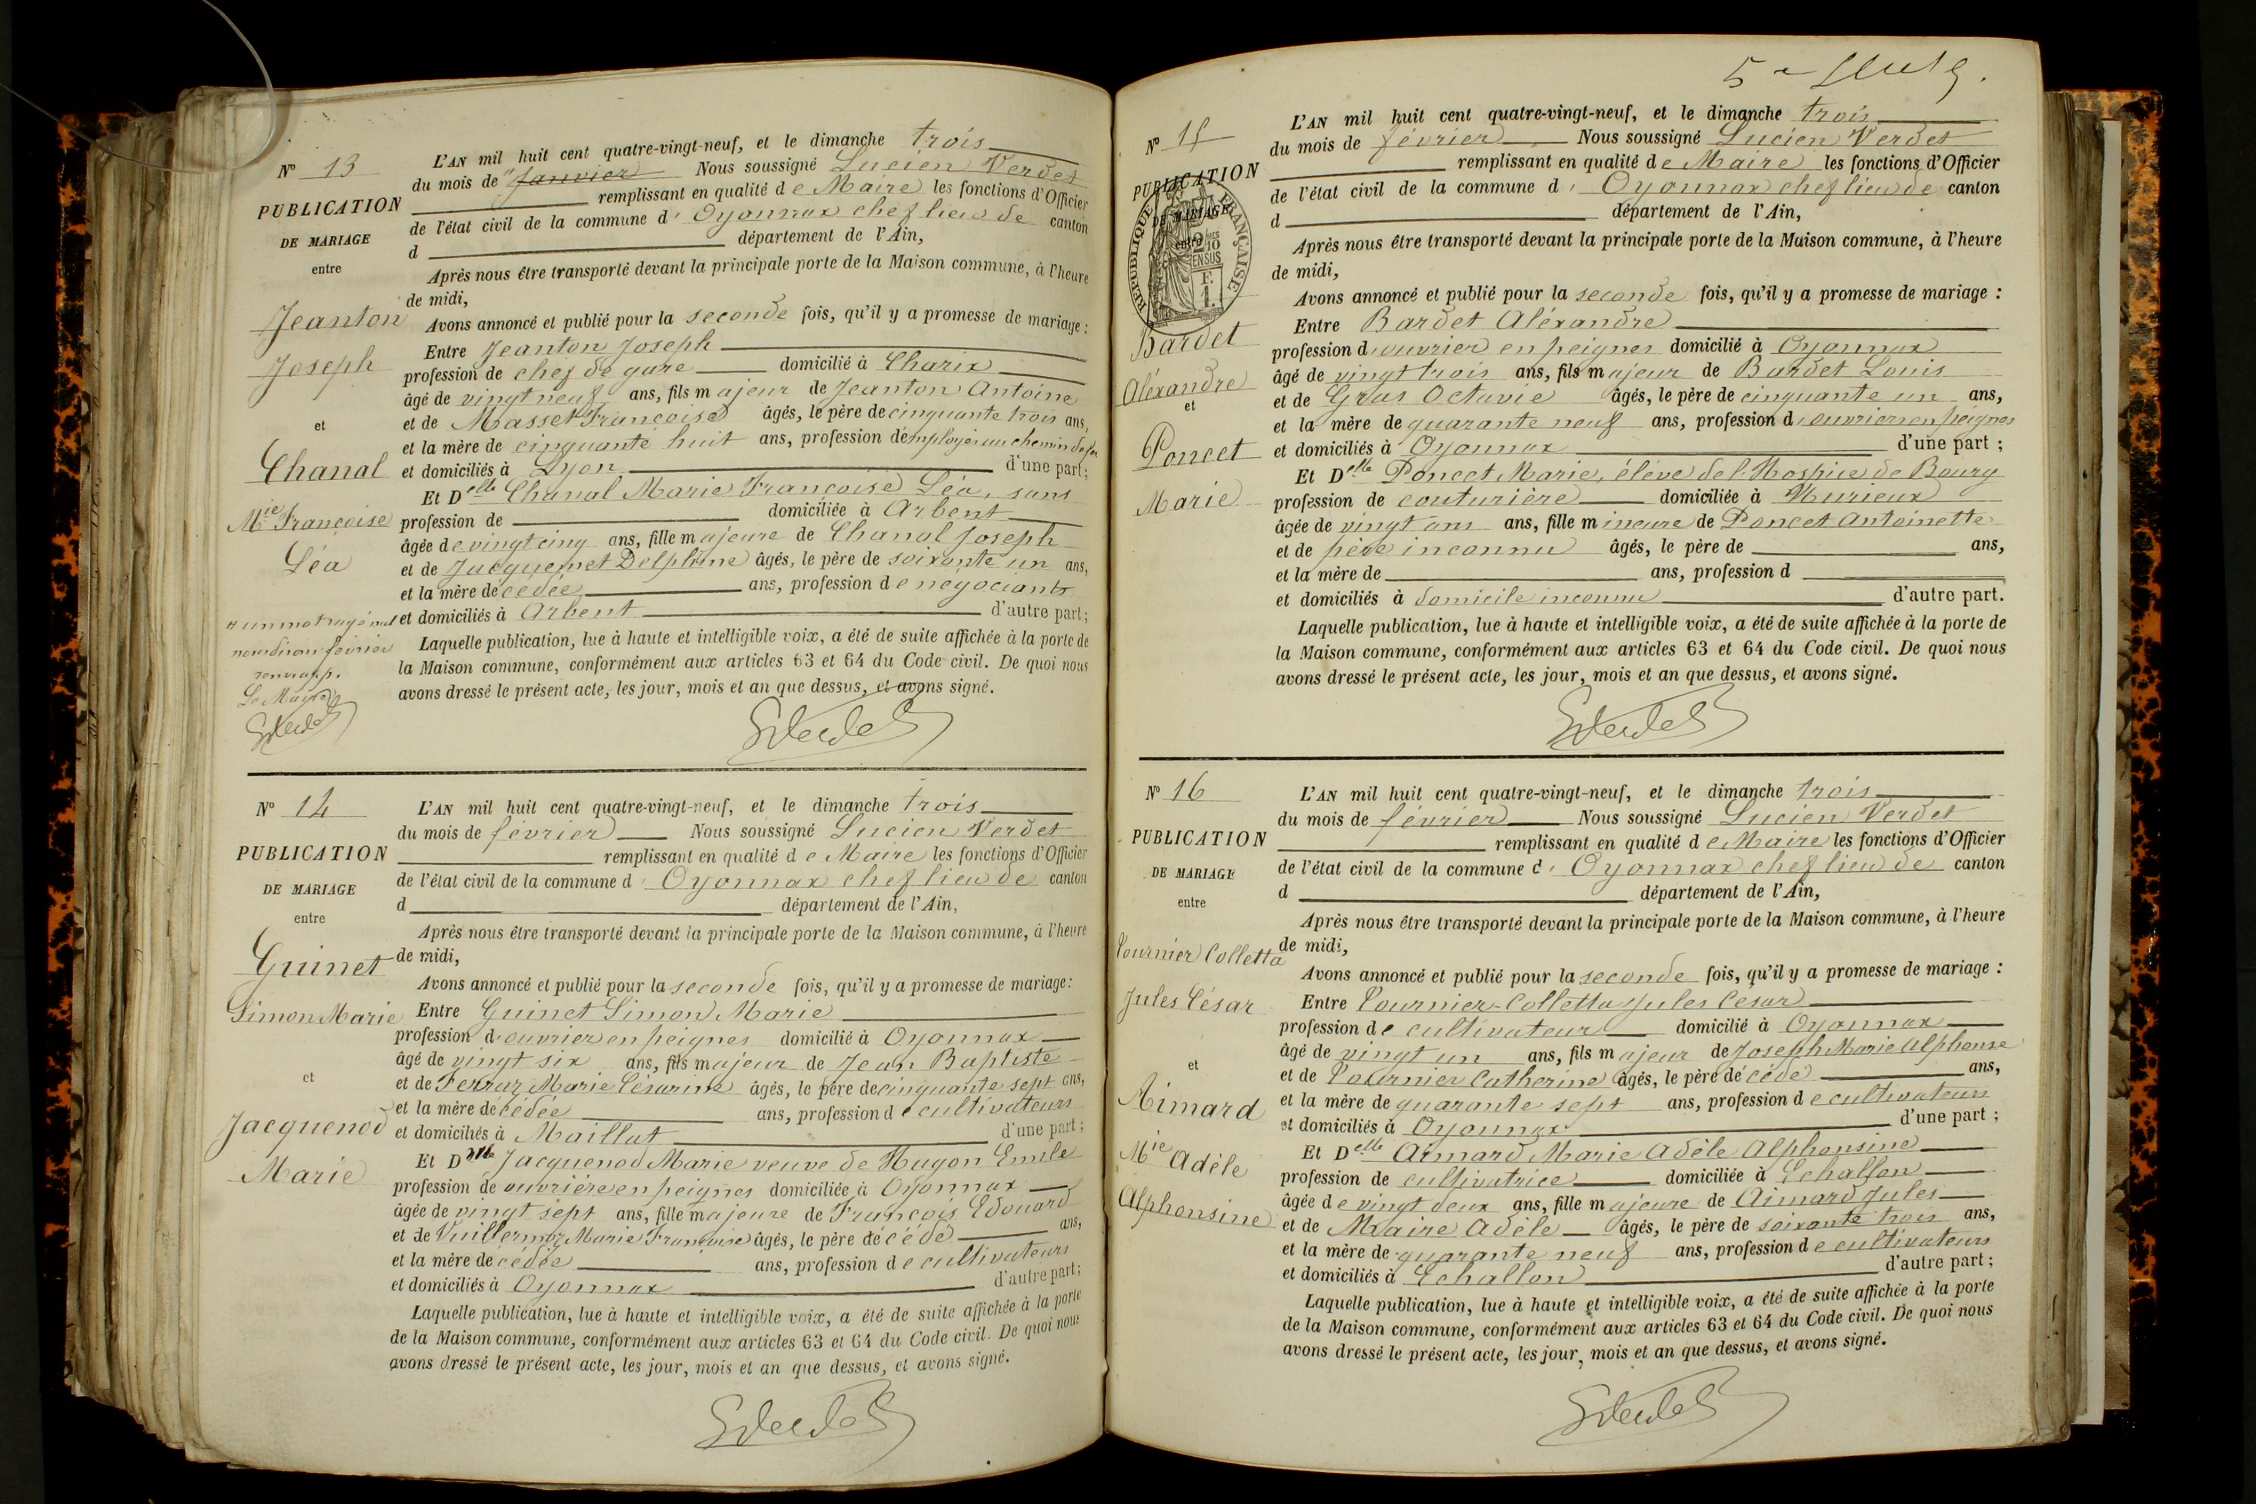 Nº 13
PUBLICATION
DE MARIAGE
entre
Jeanton
Joseph
et
Chanal
Mie Françoise
Léa
L'AN mil huit cent quatre-vingt-neuf, et le dimanche trois
du mois de "Janvier Nous soussigné Lucien Verdet
remplissant en qualité de Maire les fonctions d'Officier
de l'état civil de la commune d'Oyonnax chef lieu de canton
d département de l'Ain,
Après nous être transporté devant la principale porte de la Maison commune, à l'heure
de midi,
Avons annoncé et publié pour la seconde fois, qu'il y a promesse de mariage :
Entre Jeanton Joseph
profession de chef de gare domicilié à Charix
âgé de vingt neuf ans, fils majeur de Jeanton Antoine
et de Masset Françoise âgés, le père de cinquante trois ans,
et la mère de cinquante huit ans, profession d'employé au chemin de fer
et domiciliés à Lyon d'une part;
Et Delle Chanal Marie Françoise Léa, sans
profession de domiciliée à Arbent
âgée de vingt cinq ans, fille majeure de Chanal Joseph
et de Jacquemet Delphine âgés, le père de soixante un ans,
et la mère décédée ans, profession de négociants
et domiciliés à Arbent d'autre part;
Laquelle publication, lue à haute et intelligible voix, a été de suite affichée à la porte de
la Maison commune, conformément aux articles 63 et 64 du Code civil. De quoi nous
avons dressé le présent acte, les jour, mois et an que dessus, et avons signé.
" un mot rayé nul
nous disons février
Le Maire
Nº 14
PUBLICATION
DE MARIAGE
entre
Guinet
Simon Marie
et
Jacquenod
Marie
L'AN mil huit cent quatre-vingt-neuf, et le dimanche trois
du mois de février Nous soussigné Lucien Verdet
remplissant en qualité de Maire les fonctions d'Officier
de l'état civil de la commune d'Oyonnax chef lieu de canton
d département de l'Ain,
Après nous être transporté devant la principale porte de la Maison commune, à l'heure
de midi,
Avons annoncé et publié pour la seconde fois, qu'il y a promesse de mariage:
Entre Guinet Simon Marie
profession d'ouvrier en peignes domicilié à Oyonnax
âgé de vingt six ans, fils majeur de Jean Baptiste
et de Ferraz Marie Césarine âgés, le père de cinquante sept ans,
et la mère décédée ans, profession de cultivateurs
et domiciliés à Maillat d'une part;
Et D Jacquenod Marie veuve de Hugon Emile
profession de ouvrière en peignes domiciliée à Oyonnax
âgée de vingt sept ans, fille majeure de François Edouard
et de Vuillermoz Marie Françoise âgés, le père décédé ans,
et la mère décédée ans, profession de cultivateurs
et domiciliés à Oyonnax d'autre part;
Laquelle publication, lue à haute et intelligible voix, a été de suite affichée à la porte
de la Maison commune, conformément aux articles 63 et 64 du Code civil. De quoi nous
avons dressé le présent acte, les jour, mois et an que dessus, et avons signé.
Nº 15
PUBLICATION
DE MARIAGE
entre
RÉPUBLIQUE FRANÇAISE
2/10
EN SUS
F.
1.
Bardet
Aléxandre
et
Poncet
Marie
L'AN mil huit cent quatre-vingt-neuf, et le dimanche trois
du mois de février Nous soussigné Lucien Verdet
remplissant en qualité de Maire les fonctions d'Officier
de l'état civil de la commune d'Oyonnax chef lieu de canton
d département de l'Ain,
Après nous être transporté devant la principale porte de la Maison commune, à l'heure
de midi,
Avons annoncé et publié pour la seconde fois, qu'il y a promesse de mariage :
Entre Bardet Aléxandre
profession d'ouvrier en peignes domicilié à Oyonnax
âgé de vingt trois ans, fils majeur de Bardet Louis
et de Gras Octavie âgés, le père de cinquante un ans,
et la mère de quarante neuf ans, profession d'ouvriers en peignes
et domiciliés à Oyonnax d'une part ;
Et Delle Poncet Marie, élève de l'Hospice de Bourg
profession de couturière domiciliée à Nurieux
âgée de vingt ans ans, fille mineure de Poncet Antoinette
et de père inconnu âgés, le père de ans,
et la mère de ans, profession d
et domiciliés à domicile inconnu d'autre part.
Laquelle publication, lue à haute et intelligible voix, a été de suite affichée à la porte de
la Maison commune, conformément aux articles 63 et 64 du Code civil. De quoi nous
avons dressé le présent acte, les jour, mois et an que dessus, et avons signé.
Nº 16
PUBLICATION
DE MARIAGE
entre
Fournier Colletta
Jules César
et
Aimard
Mie Adèle
Alphonsine
L'AN mil huit cent quatre-vingt-neuf, et le dimanche trois
du mois de février Nous soussigné Lucien Verdet
remplissant en qualité de Maire les fonctions d'Officier
de l'état civil de la commune d'Oyonnax chef lieu de canton
d département de l'Ain,
Après nous être transporté devant la principale porte de la Maison commune, à l'heure
de midi,
Avons annoncé et publié pour la seconde fois, qu'il y a promesse de mariage :
Entre Fournier-Colletta Jules César
profession de cultivateur domicilié à Oyonnax
âgé de vingt un ans, fils majeur de Joseph Marie Alphonse
et de Fournier Catherine âgés, le père décédé ans,
et la mère de quarante sept ans, profession de cultivateurs
et domiciliés à Oyonnax d'une part ;
Et Delle Aimard Marie Adèle Alphonsine
profession de cultivatrice domiciliée à Echallon
âgée de vingt deux ans, fille majeure de Aimard Jules
et de Maire Adèle âgés, le père de soixante trois ans,
et la mère de quarante neuf ans, profession de cultivateurs
et domiciliés à Echallon d'autre part ;
Laquelle publication, lue à haute et intelligible voix, a été de suite affichée à la porte
de la Maison commune, conformément aux articles 63 et 64 du Code civil. De quoi nous
avons dressé le présent acte, les jour, mois et an que dessus, et avons signé.